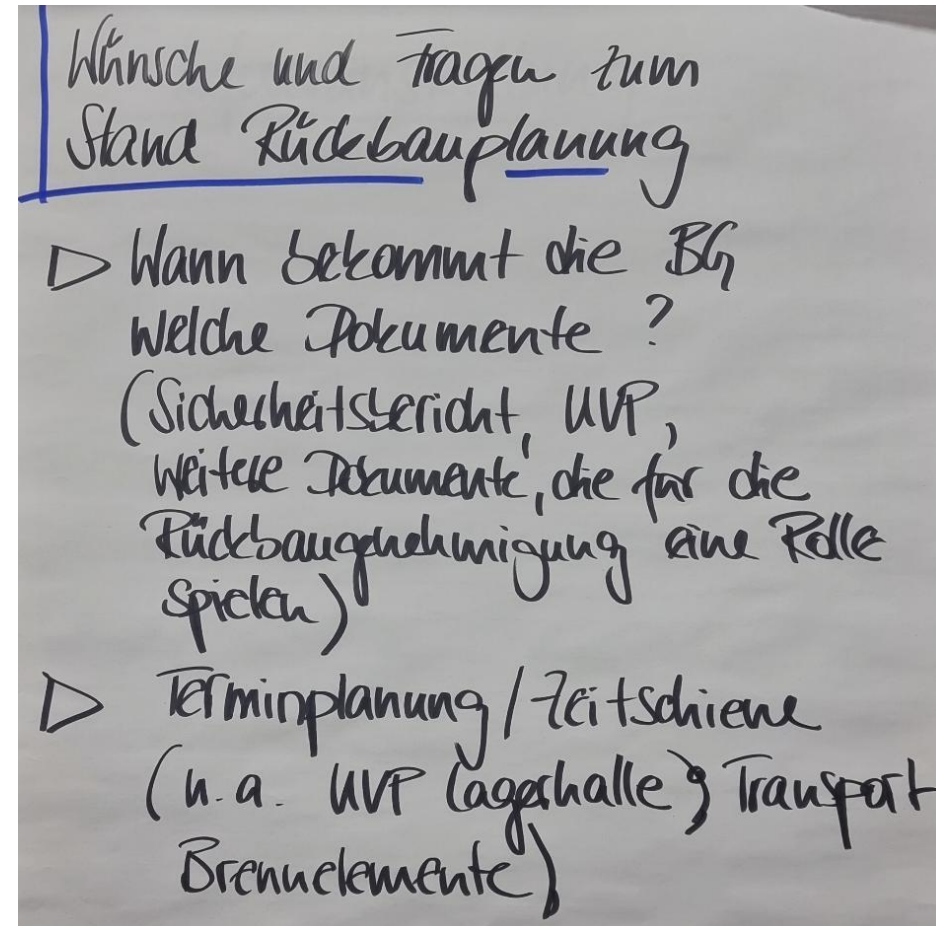 Wünsche und Fragen zum
Stand Rückbauplanung
▷ Wann bekommt die BG
welche Dokumente ?
(Sicherheitsbericht, UVP,
weitere Dokumente, die für die
Rückbaugenehmigung eine Rolle
spielen)
▷ Terminplanung / Zeitschiene
(u.a. UVP Lagerhalle, Transport
Brennelemente)